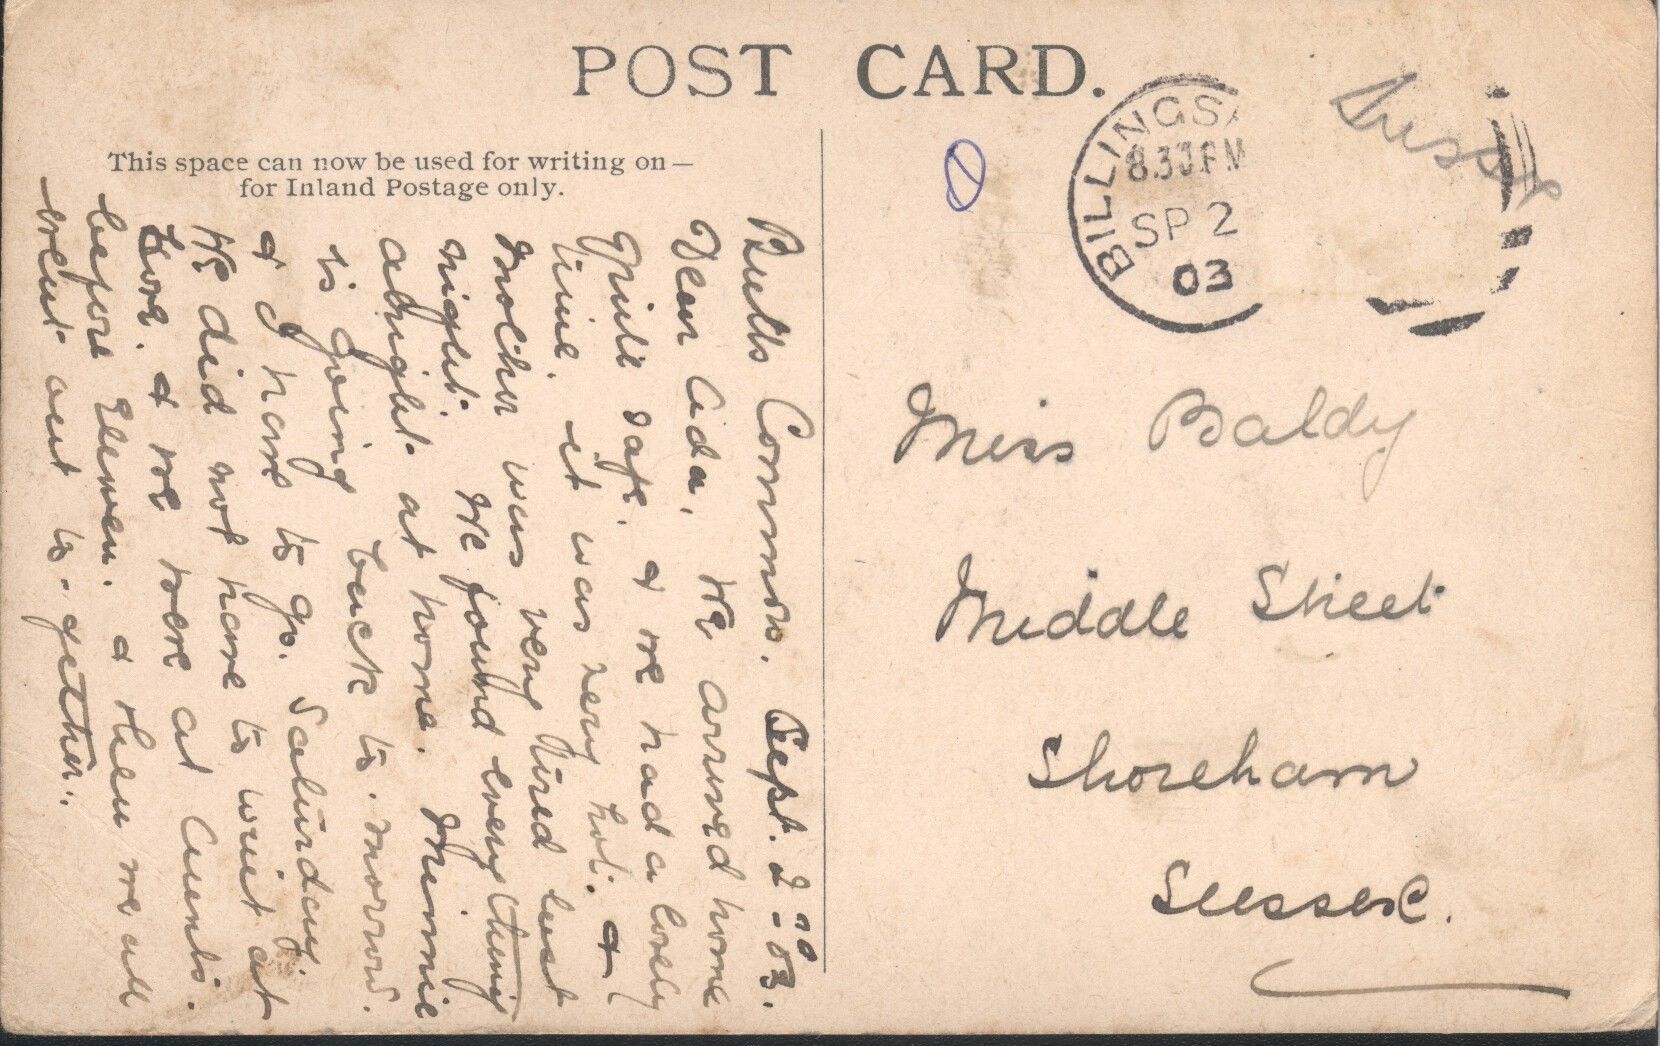 POST CARD.
This space can now be used for writing on—
for Inland Postage only.
BILLINGS
8.30PM
SP 2
03
Sussex
Bulls Common. Sept. 2nd - 03.
Dear Ada, We arrived home
quite safe. & we had a lovely
time. it was very hot. &
Mother was very tired last
night. We found every thing
alright. at home. Minnie
is going back to. morrow.
& I have to go. Saturday.
We did not have to wait at
Hove. & we were at Aunts.
before Eleven. & then we all
went out to-gether..
Miss Baldy
Middle Street
Shoreham
Sussex.